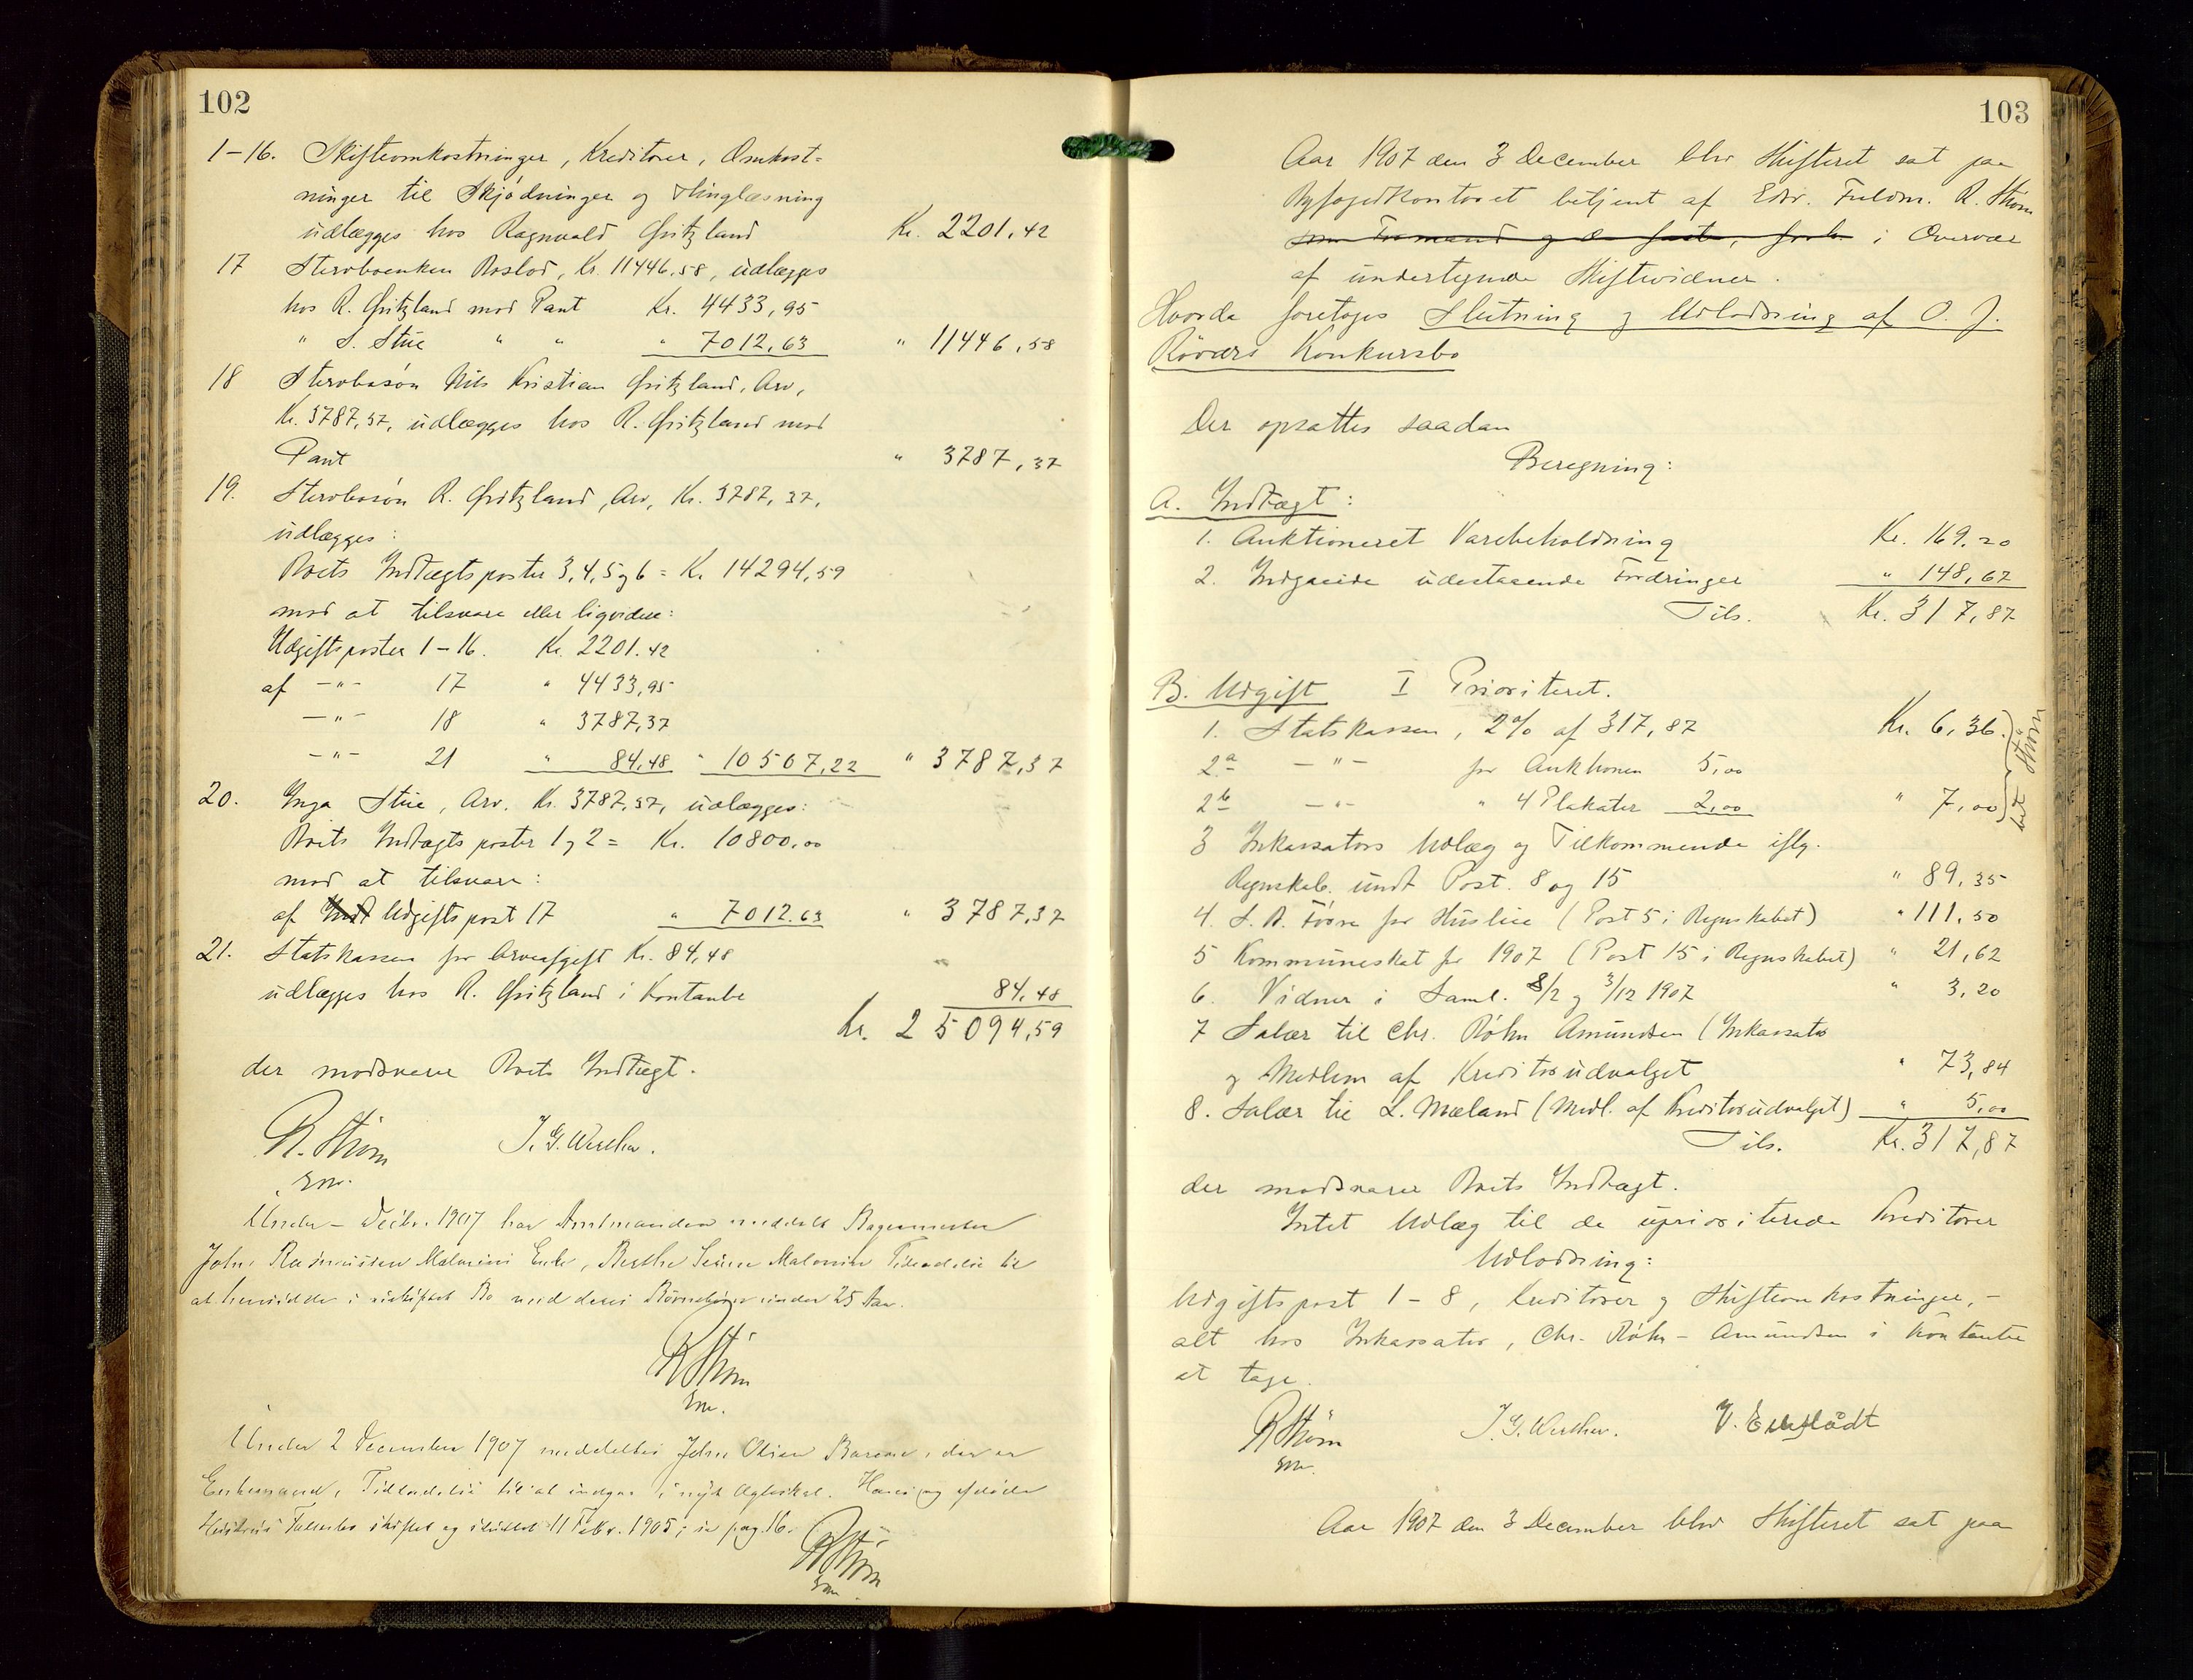 102
1–16. Skifteomkostninger, Kreditorer, Omkost-
ninger til Skjødninger og Thinglæsning
udlægges hos Ragnvald Gritzland Kr. 2201,42
17 Stervboenken Boslod, Kr. 11446,58, udlægges
hos R. Gritzland mod Pant Kr. 4433,95
" S. Stue " " " 7012,63 " 11446,58
18 Stervbosøn Nils Kristian Gritzland, Arv,
Kr. 3787,37, udlægges hos R. Gritzland mod
Pant " 3787,37
19. Stervbosøn R. Gritzland, Arv, Kr. 3787,37,
udlægges:
Boets Indtægtsposter 3,4,5 og 6 = Kr. 14294,59
mod at tilsvare eller liqvidere:
Udgiftsposter 1–16. Kr. 2201.42
af –"– 17 " 4433,95
–"– 18 " 3787,37
–"– 21 " 84,48 " 10507,22 " 3787,37
20. Inga Stue, Arv. Kr. 3787,37, udlægges:
Boets Indtægtsposter 1 og 2 = Kr. 10800,00
mod at tilsvare:
af Indt Udgiftspost 17 " 7012.63 " 3787,37
21. Statskassen for Arveafgift Kr. 84,48
udlægges hos R. Gritzland i Kontante 84,48
Kr. 25094,59
der modsvarer Boets Indtægt.
R. Strøm J. G. Werlher.
Em.
Under – Decbr. 1907 har Amtmanden meddelt
John Rasmussen Enke, Berthe Tilladelse til
at hensidde i uskiftet Bo med deres under 25 Aar.
R Strøm
Em.
Under 2 December 1907 meddeltes John Olsen, der er
Enkemand, Tilladelse til at indgaa i nyt Ægteskab. Hans og afdøde
Hustrus Fællesbo skiftet og sluttet 11 Febr. 1905, se pag. 16.
R Strøm
Em.
103
Aar 1907 den 3 December blev Skifteret sat paa
Byfogedkontoret betjent af Edsv. Fuldm. R. Strøm
i Overvær
af undertegnede Skiftevidner.
Hvorda foretoges Slutning og Udlodning af O. J.
Røværs Konkursbo
Der opsattes saadan
Beregning:
A. Indtægt:
1. Auktioneret Varebeholdning Kr. 169,20
2. Indgaaede udestaaende Fordringer " 148,67
Tils. Kr. 317,87
B. Udgift I Prioriteret.
1. Statskassen, 2% af 317,87 Kr. 6,36
2a –"– for Auktionen 5,00
2b –"– " 4 Plakater 2,00 " 7,00
bet Strøm
3 Inkassators Udlæg og Tilkommende iflg.
Regnskab. undt Post. 8 og 15 " 89,35
4. S. A. Føvre for Husleie (Post 5 i Regnskabet) " 111,50
5 Kommuneskat for 1907 (Post 15 i Regnskabet) " 21,62
6. Vidner i Saml. 8/2 og 3/12 1907 " 3,20
7 Salær til Chr. Røhn Amundsen (Inkassator
og Medlem af Kreditorudvalget " 73,84
8. Salær til L. Mæland (Medl. af Kreditorudvalget) " 5,00
Tils. Kr. 317,87
der modsvarer Boets Indtægt.
Intet Udlæg til de uprioriterede Kreditorer
Udlodning:
Udgiftspost 1–8, Kreditorer og Skifteomkostninger, –
alt hos Inkassator, Chr. Røhn-Amundsen i Kontante
at tage.
R Strøm J. G. Werlher.
Em.
Aar 1907 den 3 December blev Skifteret sat paa